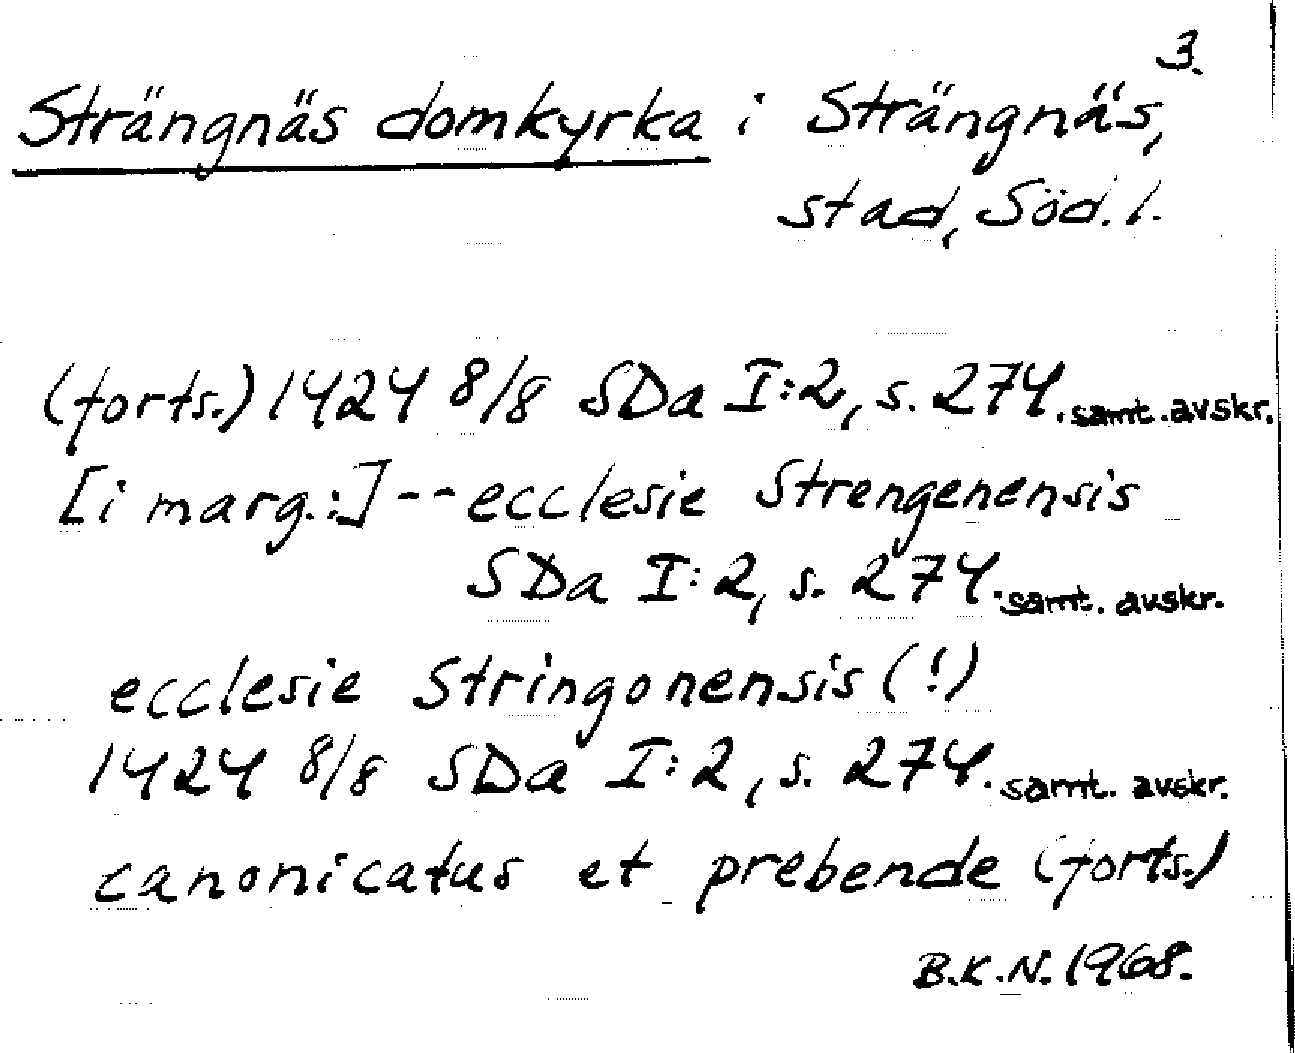 3.
Strängnäs domkyrka i Strängnäs,
stad, Söd. l.
(forts.) 1424 8/8 SDa I:2, s. 274. samt. avskr.
[i marg.:] -- ecclesie Strengenensis
SDa I:2, s. 274. samt. avskr.
ecclesie Stringonensis (!)
1424 8/8 SDa I:2, s. 274. samt. avskr.
canonicatus et prebende (forts.)
B.K.N. 1968.